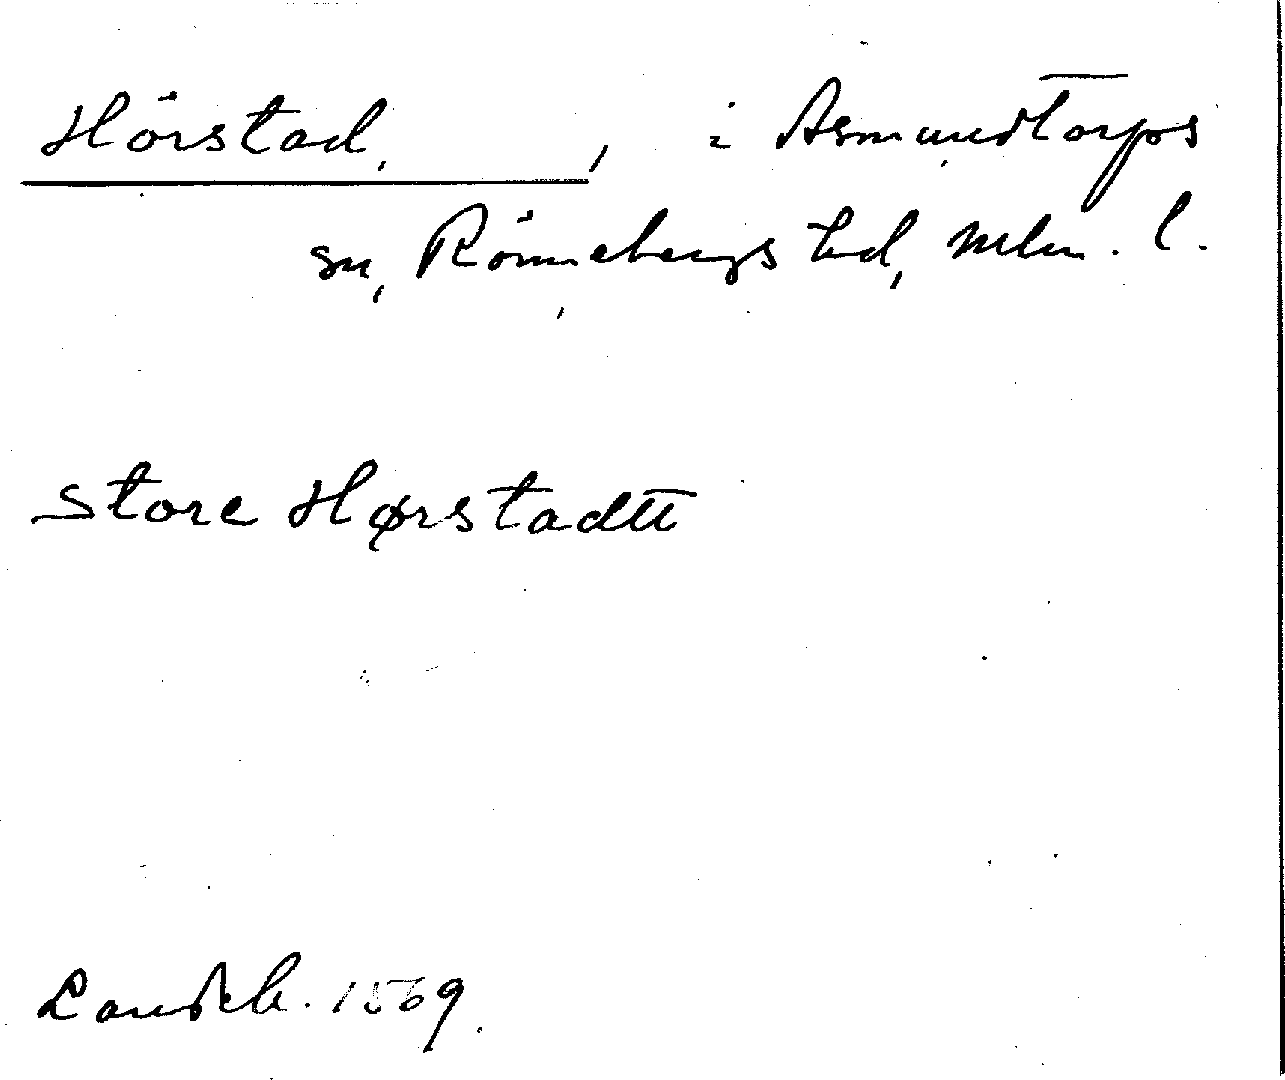 Hörstad, i Asmundtorps
sn, Rönnebergs hd, Mlm. l.
Store Hørstadtt
Landeb. 1569